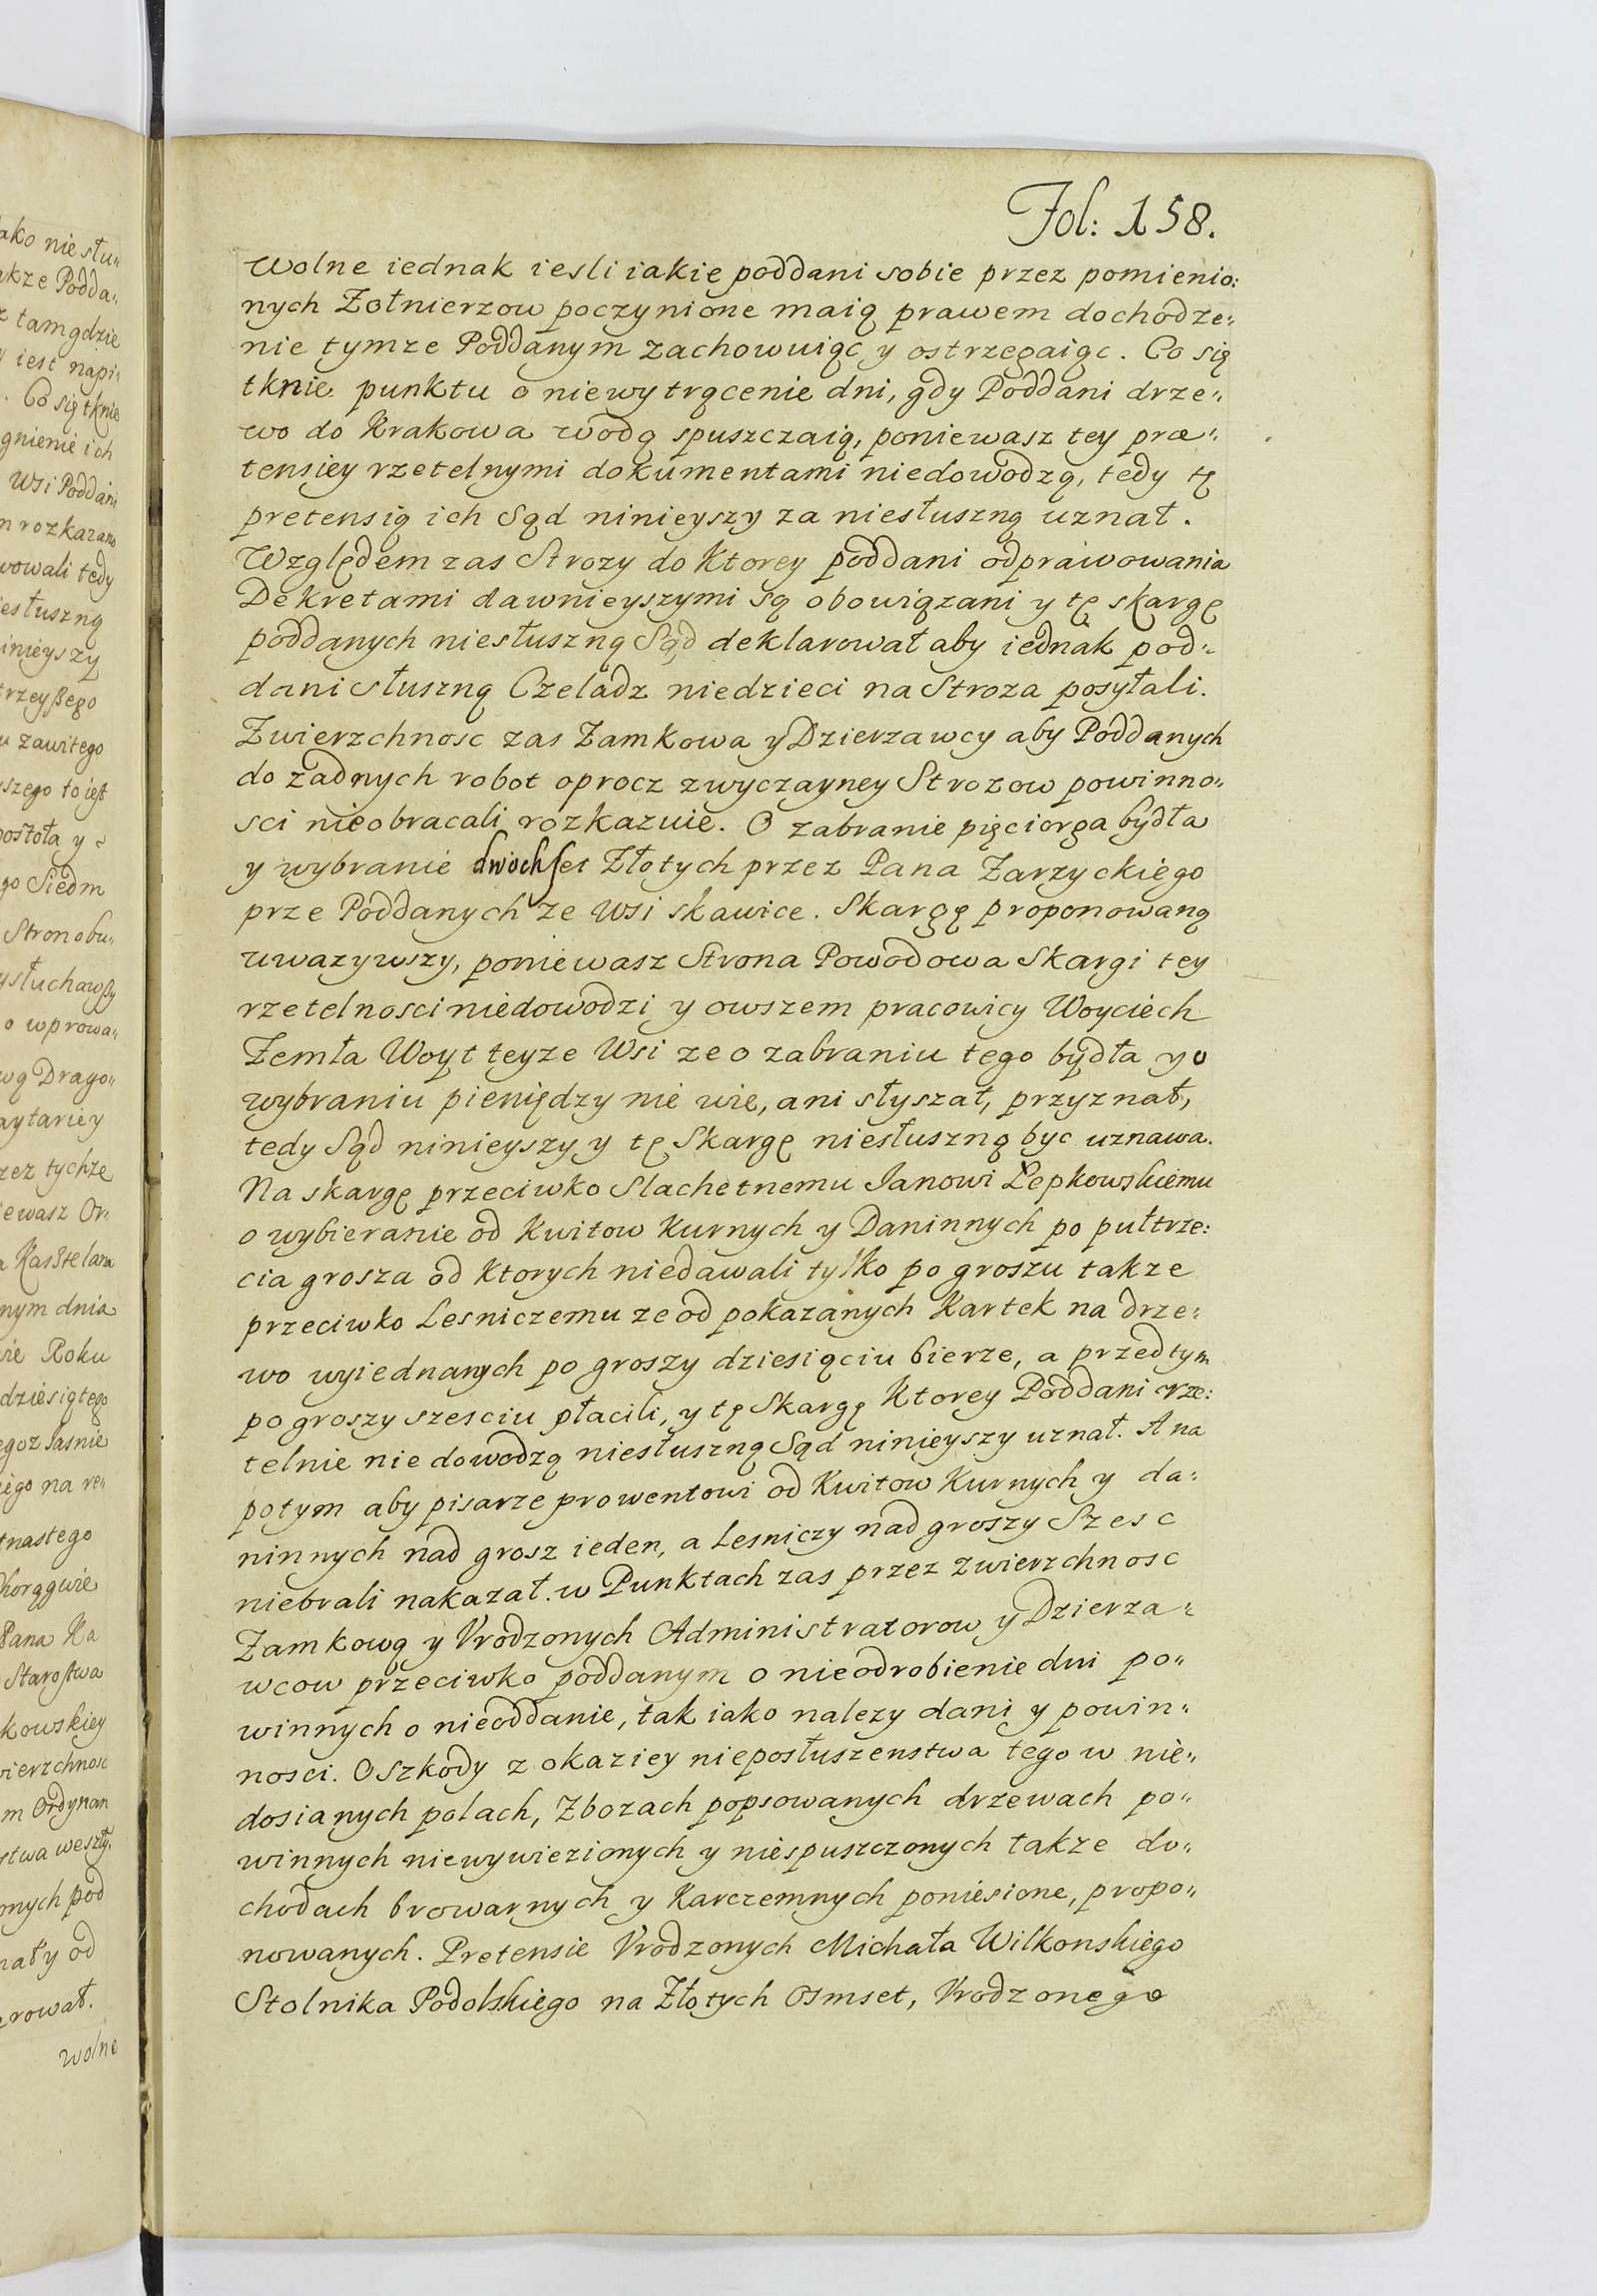 Fol: 158.
wolne iednak iesli iakie poddani sobie przez pomienio:
nych Zołnierzow poczynione maią prawem dochodze:
nie tymze Poddanym zachowuiąc y ostrzegaiąc. Co się
tknie punktu o niewytrącenie dni, gdy Poddani drze:
wo do Krakowa wodą spuszczaią, poniewasz tey præ:
tensiey rzetelnymi dokumentami niedowodzą, tedy tę
pretensią ich Sąd ninieyszy za niesłuszną uznał.
Względem zas Strozy do Ktorey poddani odprawowania
Dekretami dawnieyszymi są obowiązani y tę skargę
poddanych niesłuszną Sąd deklarował aby iednak pod:
dani słuszną Czeladz niedzieci na Stroza posyłali.
Zwierzchnosc zas Zamkowa y Dzierzawcy aby Poddanych
do zadnych robot oprocz zwyczayney Strozow powinno:
sci nieobracali rozkazuie. O zabranie pięciorga bydła
y wybranie dwochset Złotych przez Pana Zarzyckiego
prze Poddanych ze wsi skawice. Skargę proponowaną
uwazywszy, poniewasz Strona Powodowa Skargi tey
rzetelnosci niedowodzi y owszem pracowicy Woyciech
Zemła Woyt teyze Wsi ze o zabraniu tego bydła y o
wybraniu pieniędzy nie wie, ani słyszał, przyznał,
tedy Sąd ninieyszy y tę Skargę niesłuszną byc uznawa.
Na skargę przeciwko Slachetnemu Ianowi Łepkowskiemu
o wybieranie od Kwitow Kurnych y Daninnych po pułtrze:
cia grosza od Ktorych niedawali tylko po groszu takze
przeciwko Lesniczemu ze od pokazanych Kartek na drze:
wo wyiednanych po groszy dziesiąciu bierze, a przedtym
po groszy szesciu płacili, y tę Skargę Ktorey Poddani rze:
telnie nie dowodzą niesłuszną Sąd ninieyszy uznał. A na
potym aby pisarze prowentowi od Kwitow Kurnych y da:
ninnych nad grosz ieden, a Lesniczy nad groszy Szesc
niebrali nakazał. w Punktach zas przez zwierzchnosc
Zamkową y Vrodzonych Administratorow y Dzierza:
wcow przeciwko poddanym o nieodrobienie dni po:
winnych o nieoddanie, tak iako nalezy dani y powin:
nosci. O Szkody z okaziey nieposłuszenstwa tego w nie:
dosianych polach, Zbozach popsowanych drzewach po:
winnych niewywiezionych y niespuszczonych takze do:
chodach browarnych y Karczemnych poniesione, propo:
nowanych. Pretensie Vrodzonych Michała Wilkonskiego
Stolnika Podolskiego na Złotych Osmset, Vrodzonego